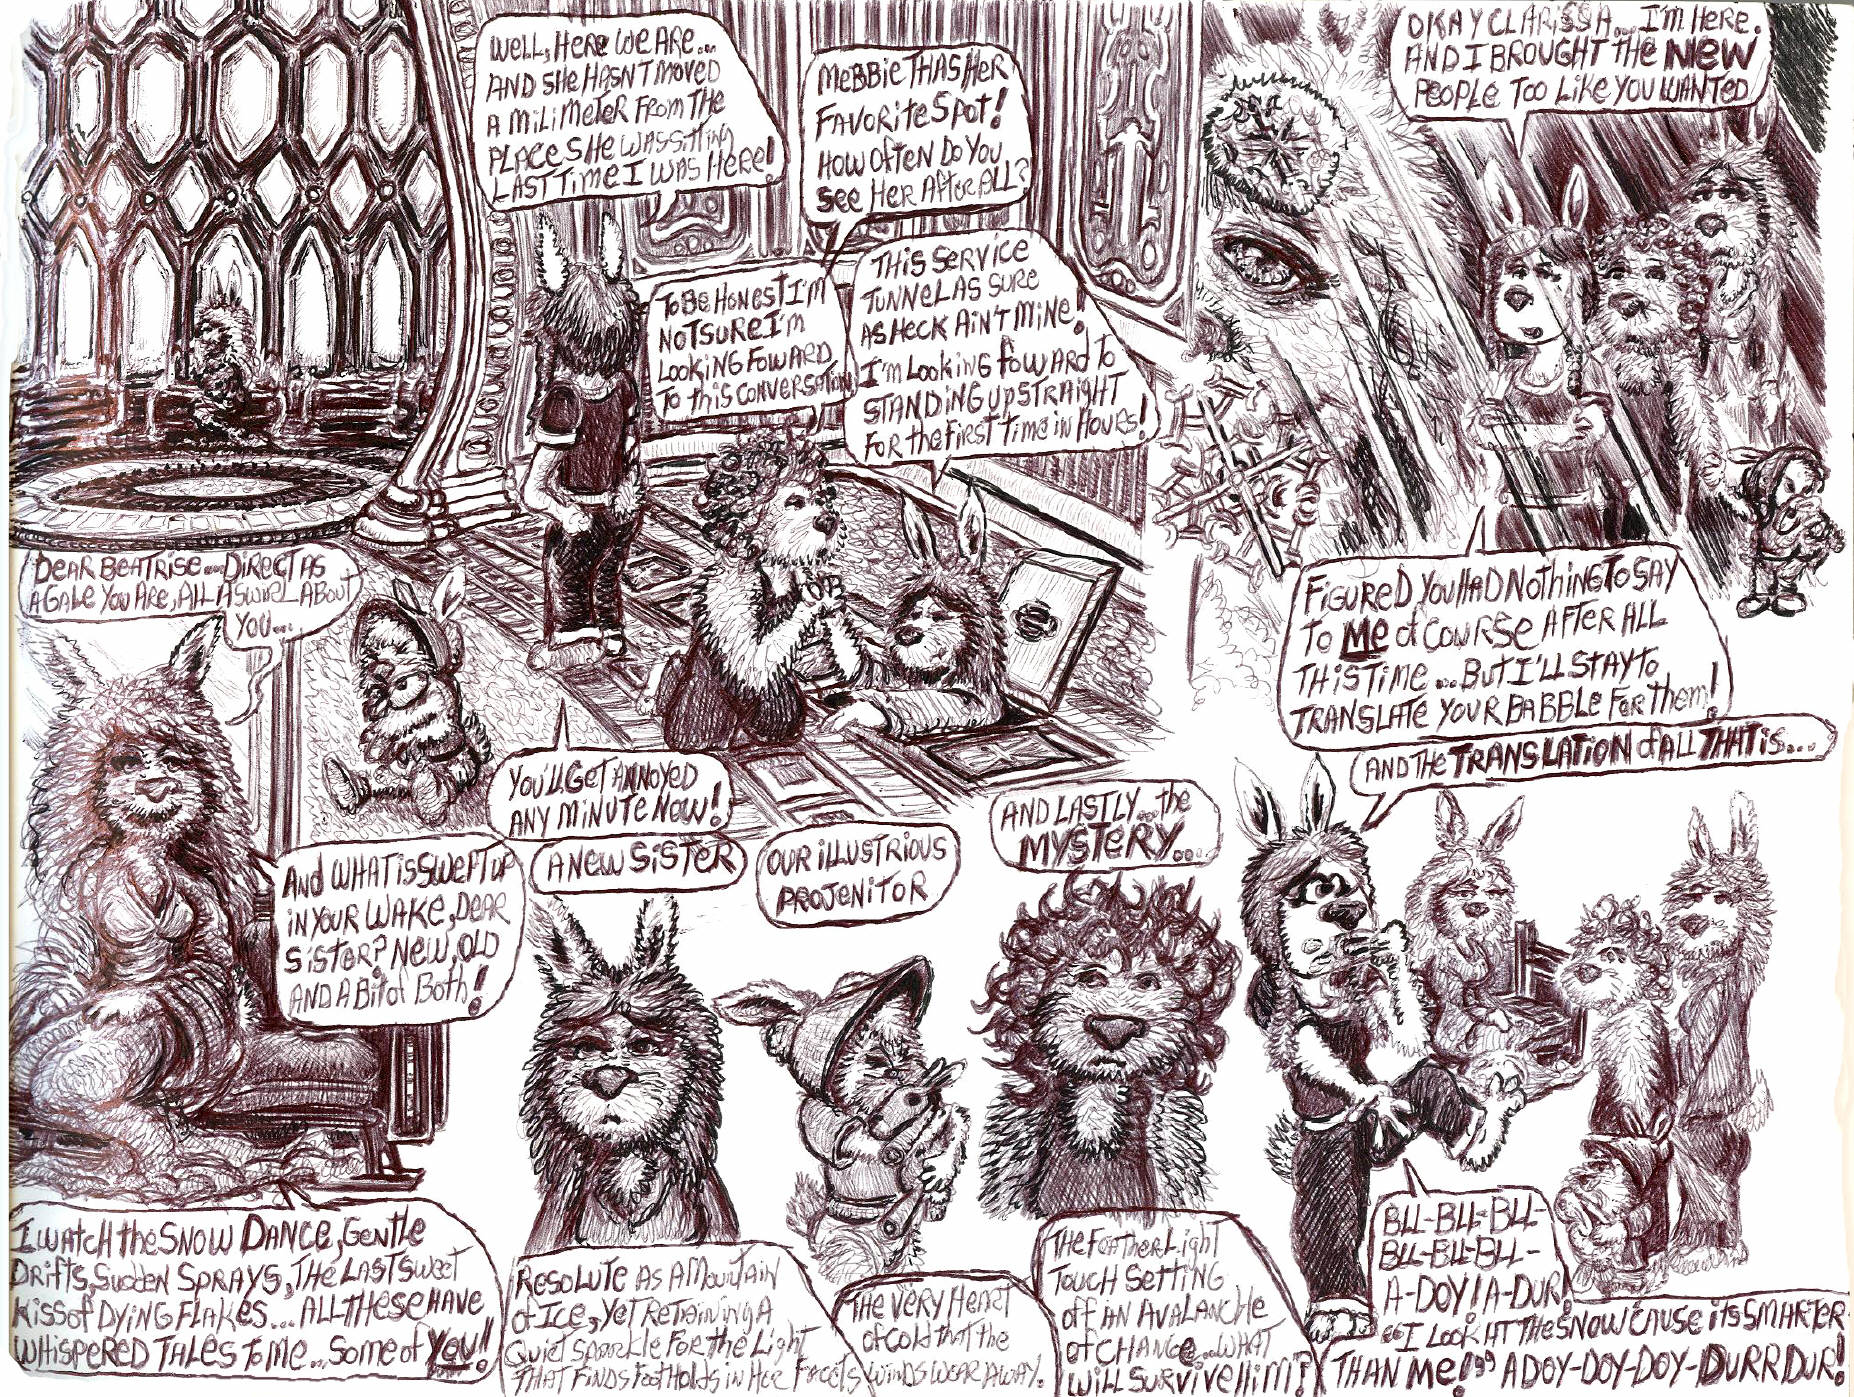 WELL, HERE WE ARE...
AND SHE HASN'T MOVED
A MILIMETER FROM THE
PLACE SHE WAS SITTING
LAST TIME I WAS HERE!
MEBBIE THAS HER
FAVORITE SPOT!
HOW OFTEN DO YOU
SEE HER AFTER ALL?
TO BE HONEST I'M
NOT SURE I'M
LOOKING FOWARD
TO THIS CONVERSATION
THIS SERVICE
TUNNEL AS SURE
AS HECK AIN'T MINE!
I'M LOOKING FOWARD TO
STANDING UP STRAIGHT
FOR THE FIRST TIME IN HOURS!
OKAY CLARISSA... I'M HERE.
AND I BROUGHT THE NEW
PEOPLE TOO LIKE YOU WANTED
FIGURED YOU HAD NOTHING TO SAY
TO ME OF COURSE AFTER ALL
THIS TIME... BUT I'LL STAY TO
TRANSLATE YOUR BABBLE FOR THEM!
DEAR BEATRISE... DIRECT AS
A GALE YOU ARE, ALL A SWIRL ABOUT
YOU...
YOU'LL GET ANNOYED
ANY MINUTE NOW!
AND WHAT IS SWEPT UP
IN YOUR WAKE, DEAR
SISTER? NEW, OLD
AND A BIT OF BOTH!
A NEW SISTER
OUR ILLUSTRIOUS
PROJENITOR
AND LASTLY... THE
MYSTERY...
AND THE TRANSLATION OF ALL THAT IS...
I WATCH THE SNOW DANCE, GENTLE
DRIFTS, SUDDEN SPRAYS, THE LAST SWEET
KISS OF DYING FLAKES... ALL THESE HAVE
WHISPERED TALES TO ME... SOME OF YOU!
RESOLUTE AS A MOUNTAIN
OF ICE, YET RETAINING A
QUIET SPARKLE FOR THE LIGHT
THAT FINDS FOOTHOLDS IN HER FACETS
THE VERY HEART
OF COLD THAT THE
WINDS WEAR AWAY.
THE FEATHER LIGHT
TOUCH SETTING
OFF AN AVALANCHE
OF CHANGE... WHAT
WILL SURVIVE HIM?
BLL-BLL-BLL-
BLL-BLL-BLL-
A-DOY! A-DUR!
"I LOOK AT THE SNOW 'CAUSE ITS SMARTER
THAN ME!" A DOY-DOY-DOY-DURR DUR!